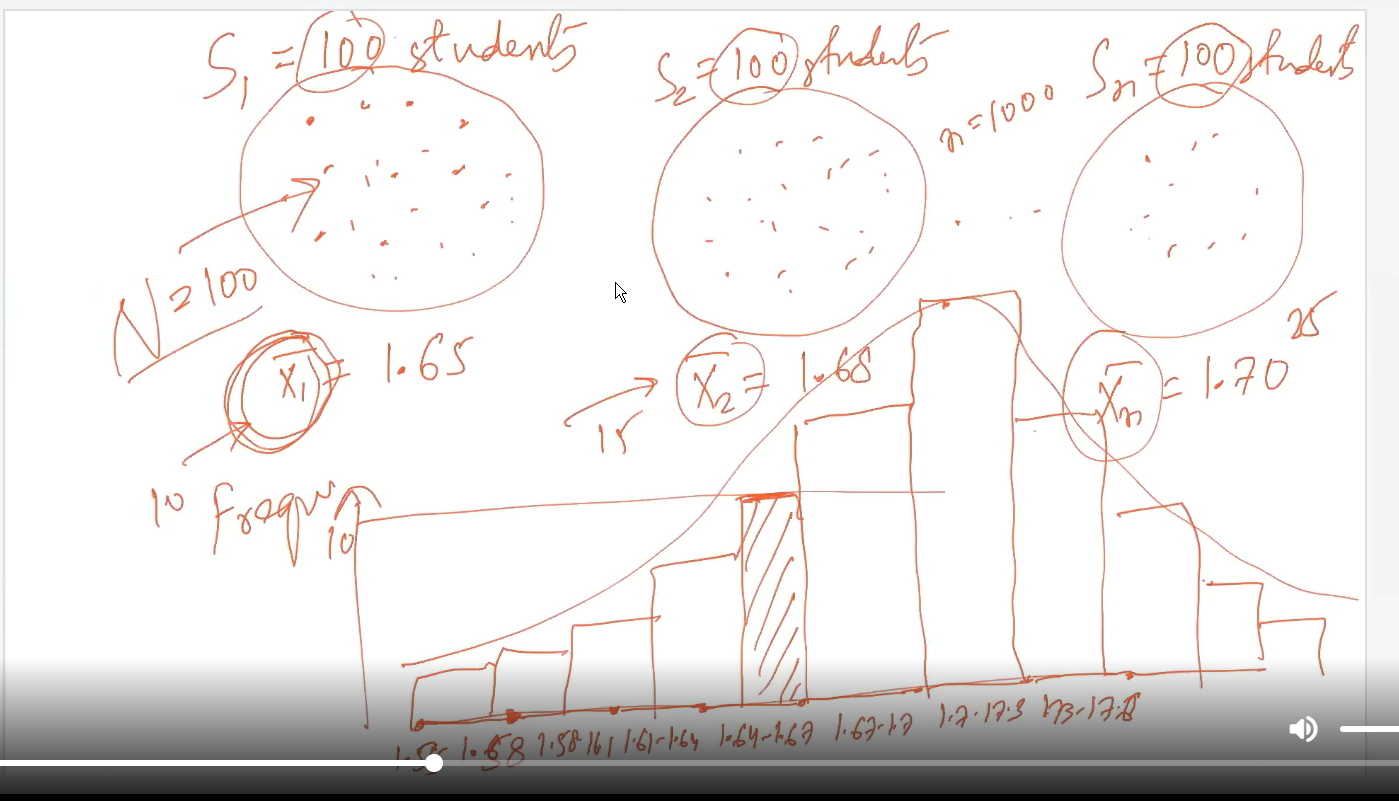 S1 = 100 students
S2 = 100 students
n=1000
Sn = 100 students
N=100
X1 = 1.65
X2 = 1.68
Xn = 1.70
25
15
10
Frequ
10
1.55 1.58 1.58 161 1.61-1.64 1.64-1.67 1.67-1.7 1.7-17.3